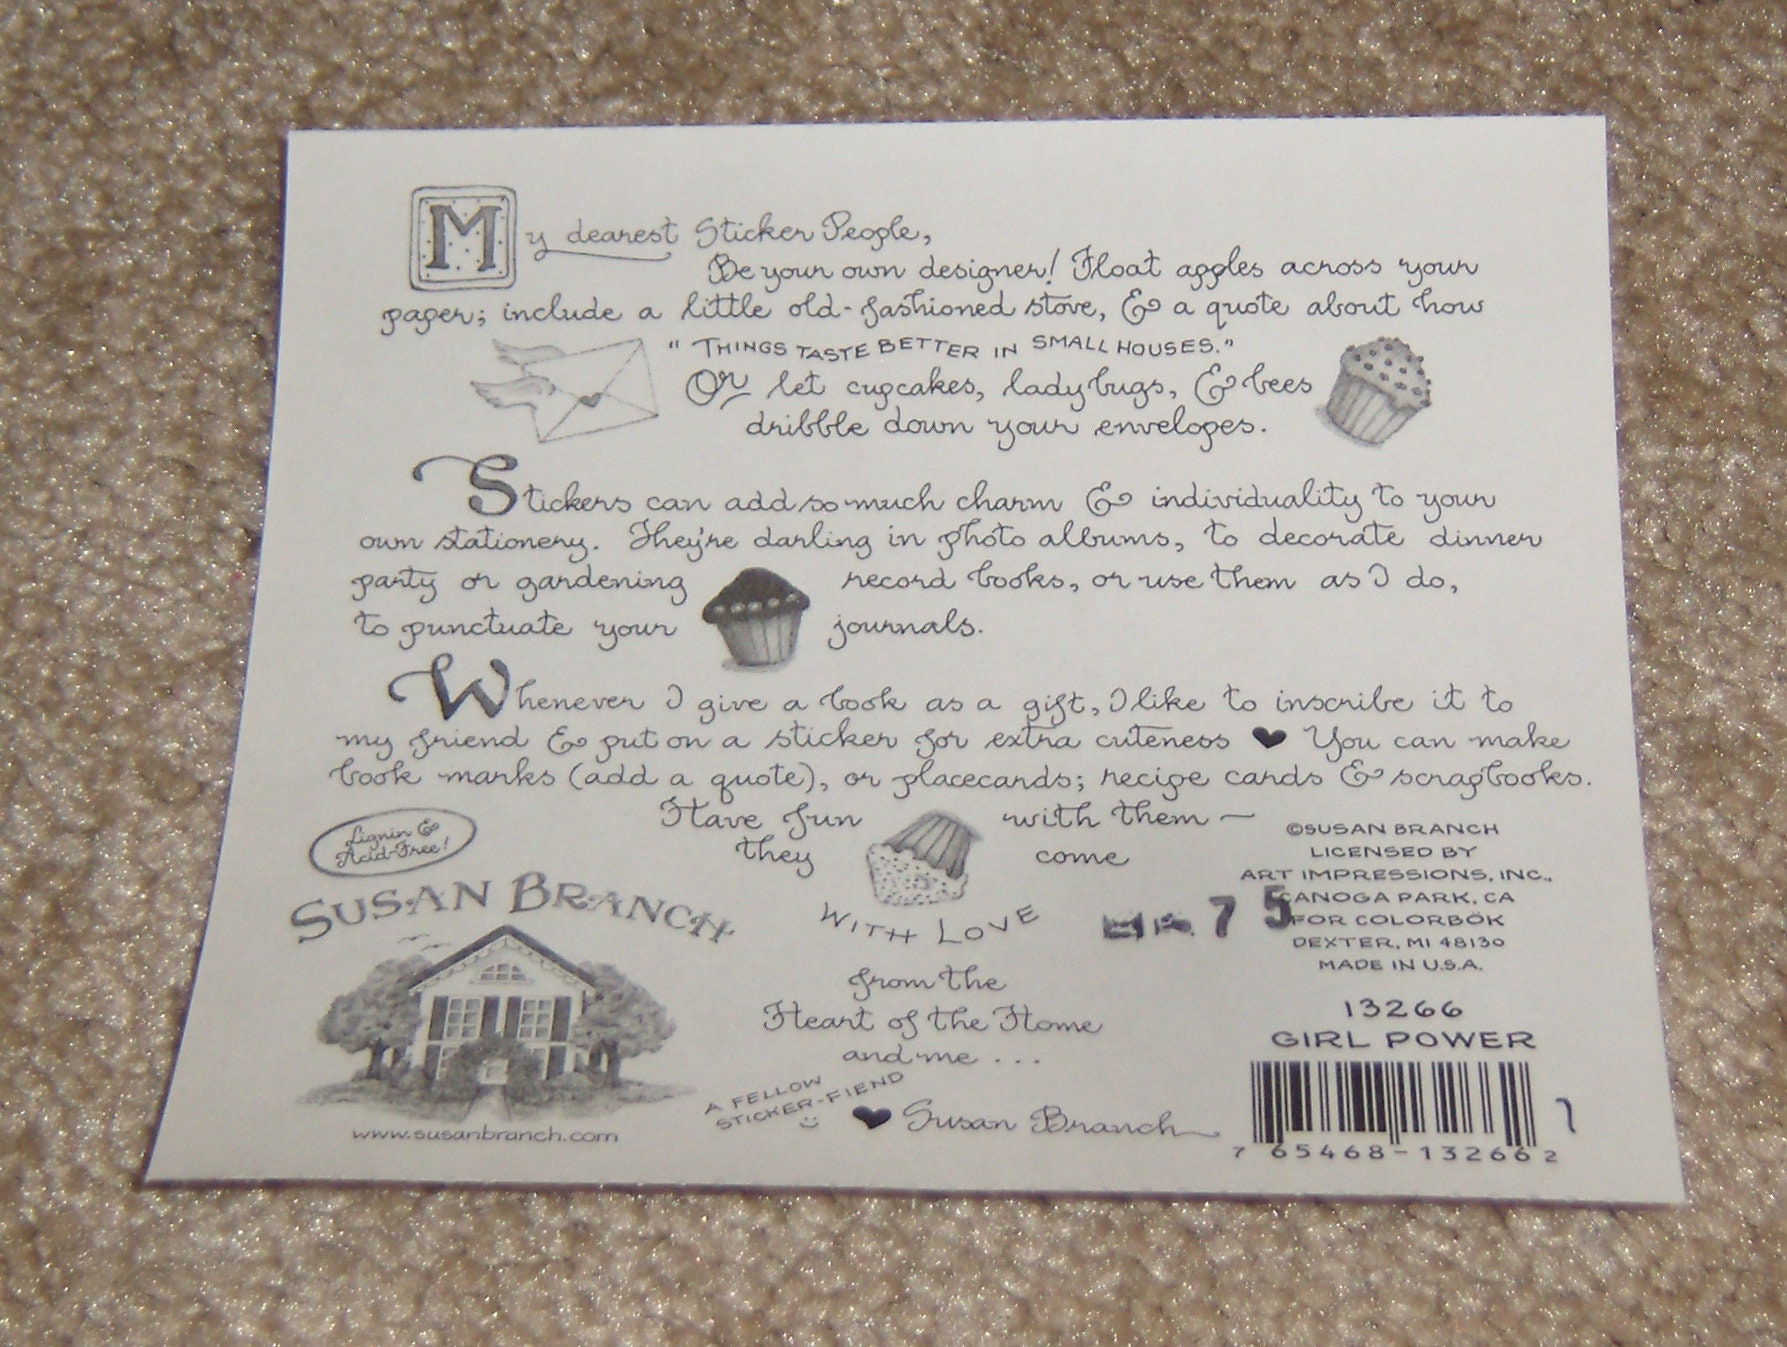 My dearest Sticker People,
Be your own designer! Float apples across your
paper; include a little old-fashioned stove, & a quote about how
"THINGS TASTE BETTER IN SMALL HOUSES."
Or let cupcakes, ladybugs, & bees
dribble down your envelopes.
Stickers can add so much charm & individuality to your
own stationery. They're darling in photo albums, to decorate dinner
party or gardening record books, or use them as I do,
to punctuate your journals.
Whenever I give a book as a gift, I like to inscribe it to
my friend & put on a sticker for extra cuteness ♥ You can make
book marks (add a quote), or placecards; recipe cards & scrapbooks.
Have fun with them —
they come
WITH LOVE
from the
Heart of the Home
and me . . .
A FELLOW
STICKER-FIEND
♥ Susan Branch
Lignin &
Acid-Free!
SUSAN BRANCH
www.susanbranch.com
©SUSAN BRANCH
LICENSED BY
ART IMPRESSIONS, INC.,
CANOGA PARK, CA
FOR COLORBÖK
DEXTER, MI 48130
MADE IN U.S.A.
7 5
13266
GIRL POWER
7 65468-13266 2